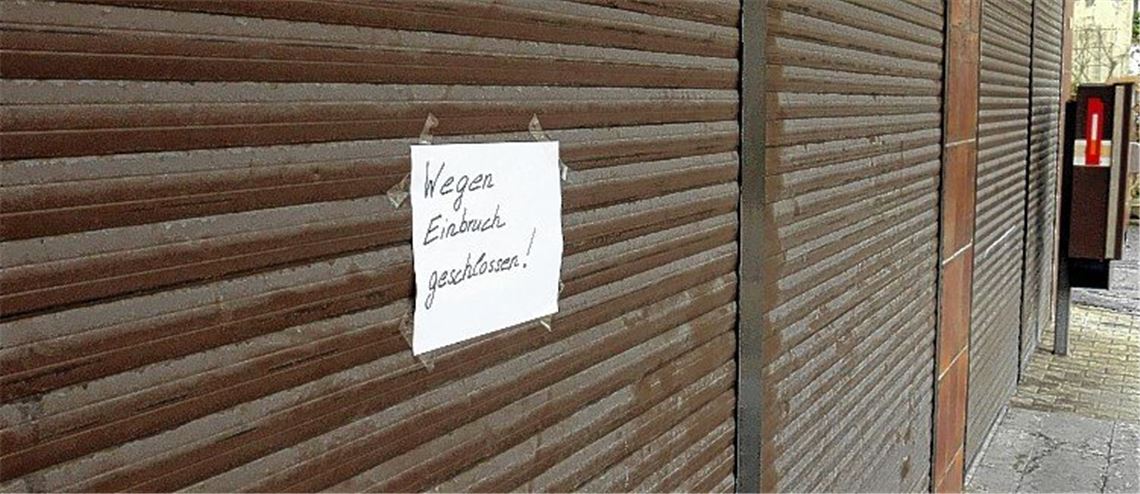 Wegen
Einbruch
geschlossen!